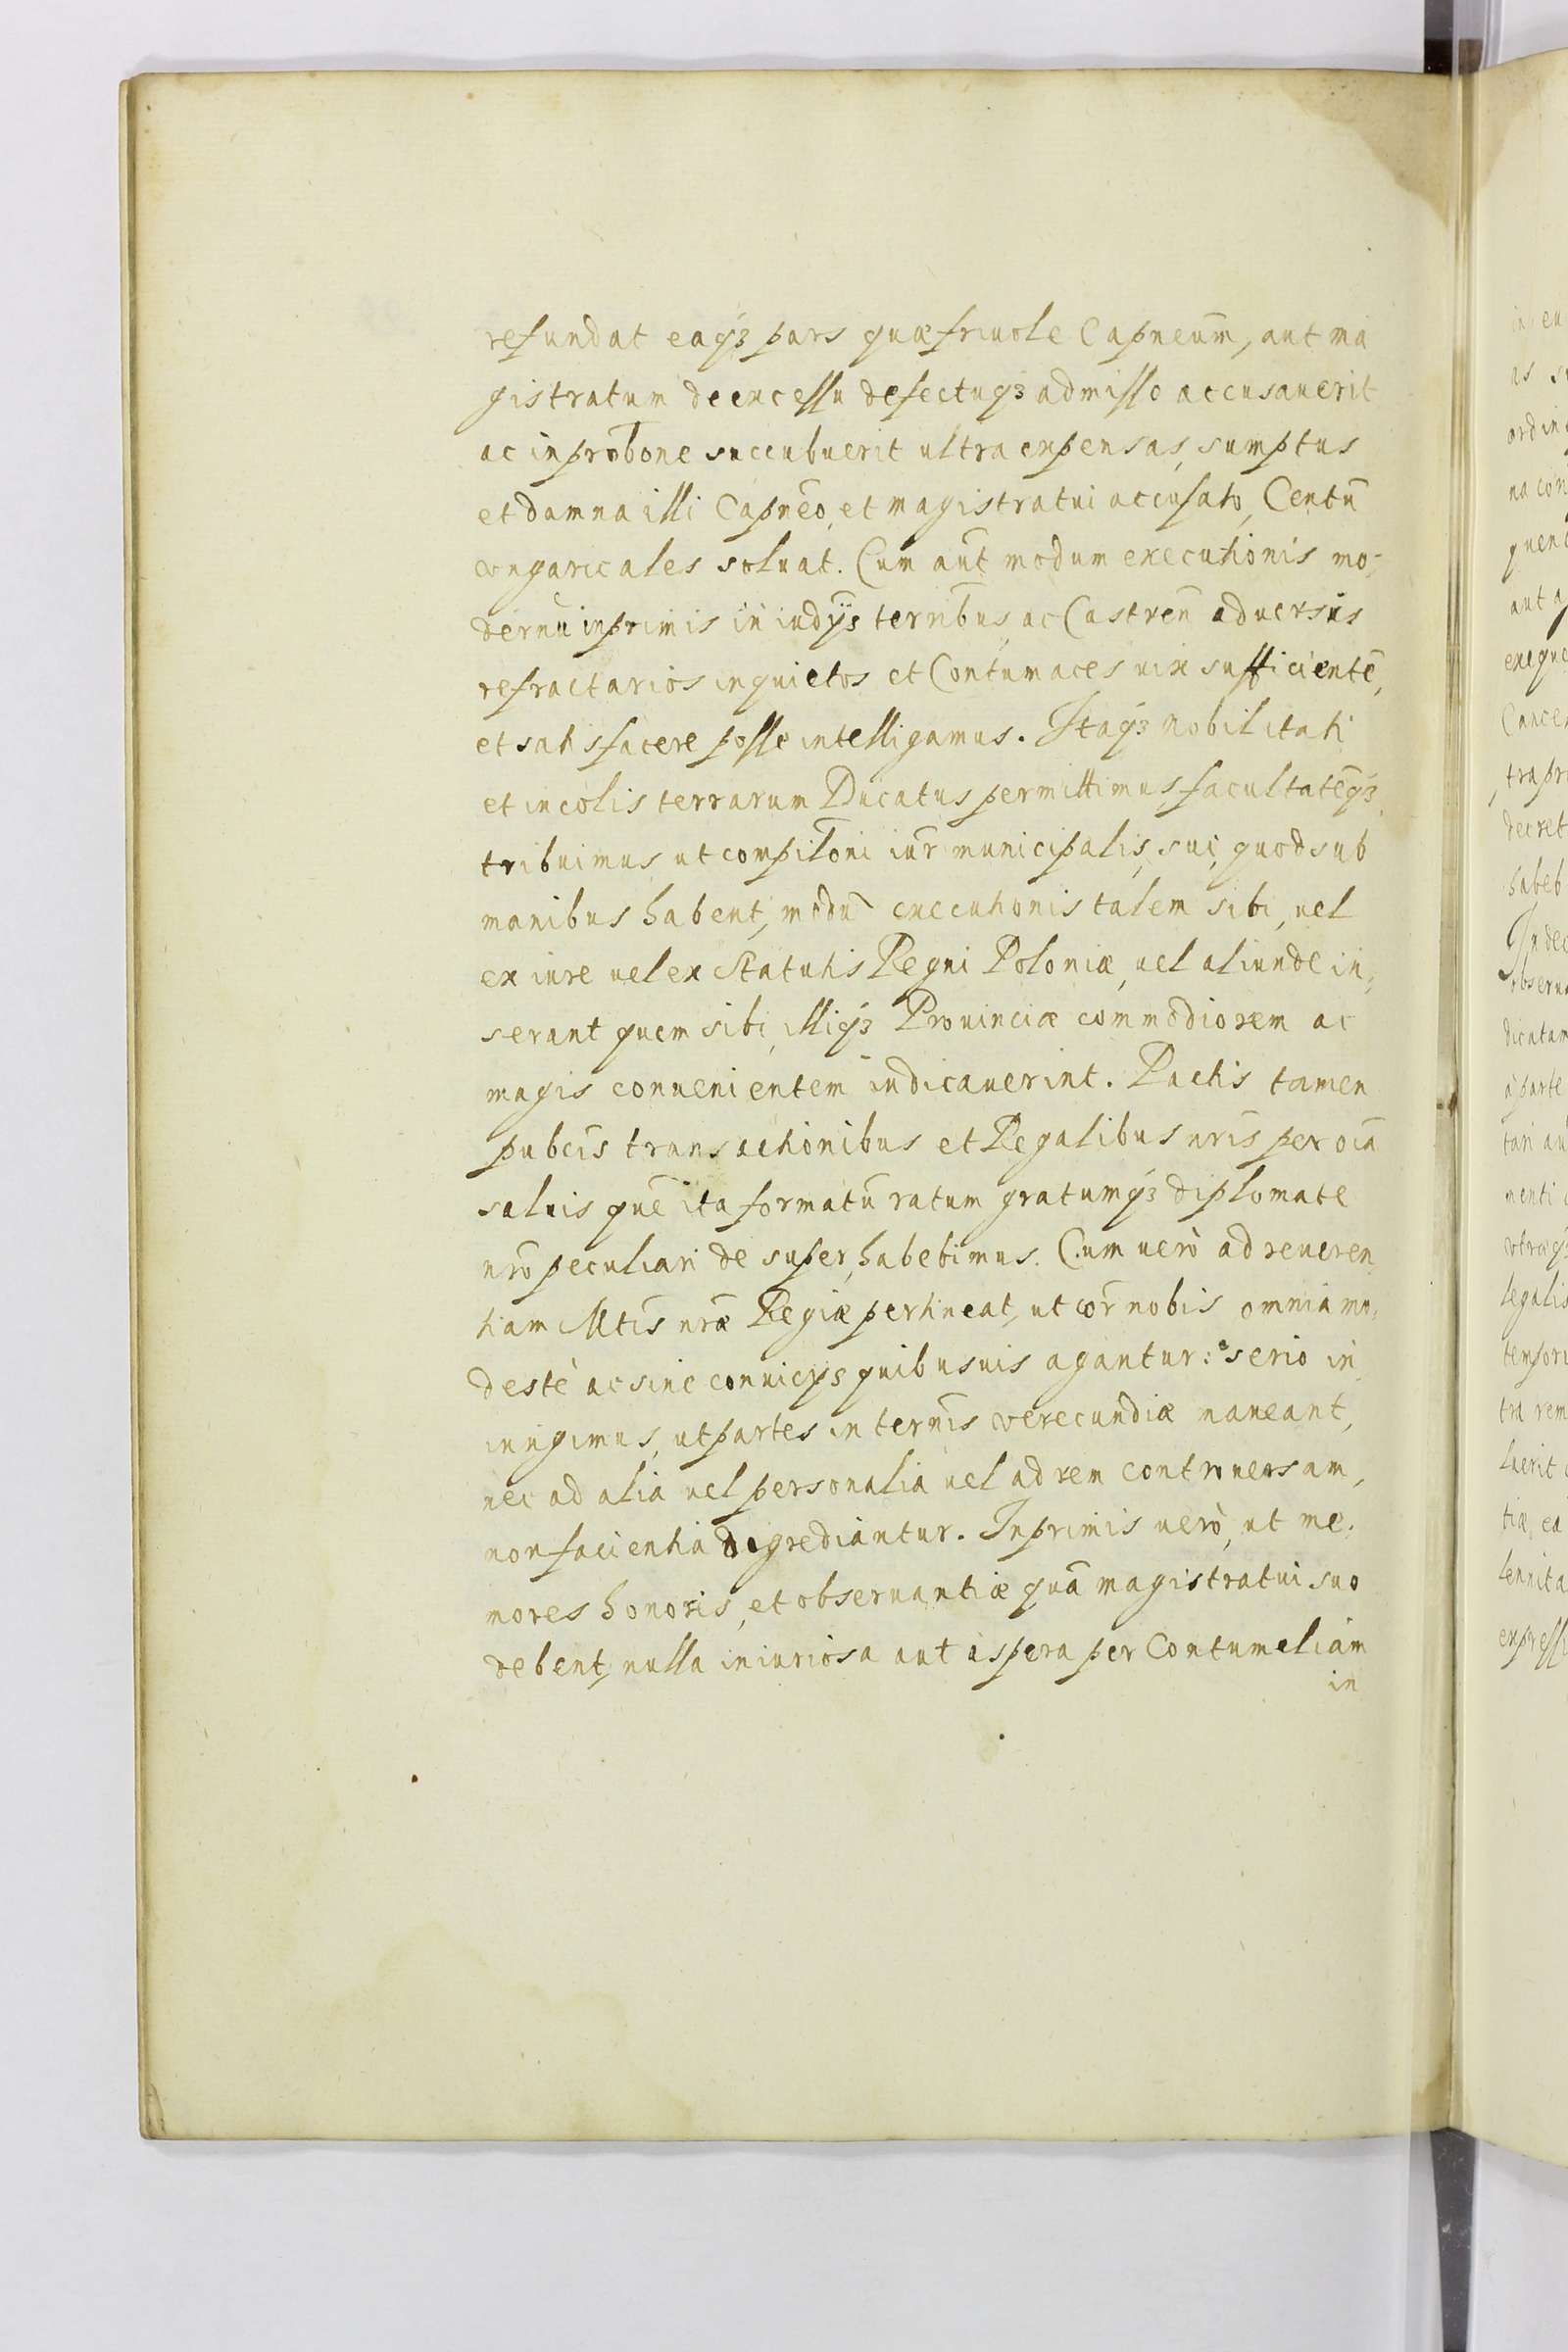 refundat eaqꝫ pars quæ friuole Capneum̄, aut ma
gistratum de excessu defectuqꝫ admisso accusauerit
ac in prob̄one succubuerit ultra expensas, sumptus
et damna illi Capneō, et magistratui accusato, Centū
vngaricales soluat. Cum aut̄ modum executionis mo-
dernū inprimis in iudyś terrib̄us, ac Castren̄ aduersus
refractarios inquietos et Contumaces uix sufficientē,
et satisfacere posse intelligamus. Itaqꝫ nobilitati
et incolis terrarum Ducatus permittimus, facultatēqꝫ
tribuimus, ut compilōni iur̄ municipalis, sui, quod sub
manibus habent, modū executionis talem sibi, uel
ex iure uel ex Statutis Regni Poloniæ, uel aliunde in,
serant quem sibi, illiqꝫ Prouinciæ commodiorem ac
magis conuenientem iudicauerint. Pactis tamen
pub̄cis transactionibus et Regalibus nr̄is per oīa
saluis quē ita formatū ratum gratumqꝫ diplomate
nr̄o peculiari de super, habebimus. Cum uerò ad reueren
tiam Mt̄is nr̄æ Regiæ pertineat, ut cor̄ nobis omnia mo,
destè ac sine conuicys quibusuis agantur: serio in
iungimus, ut partes in termīs verecundiæ maneant,
nec ad alia uel personalia uel ad rem controuersam,
non facientia digrediantur. Inprimis uerò, ut me.
mores honoris, et obseruantiæ quā magistratui suo
debent, nulla iniuriosa aut aspera per Contumeliam
in